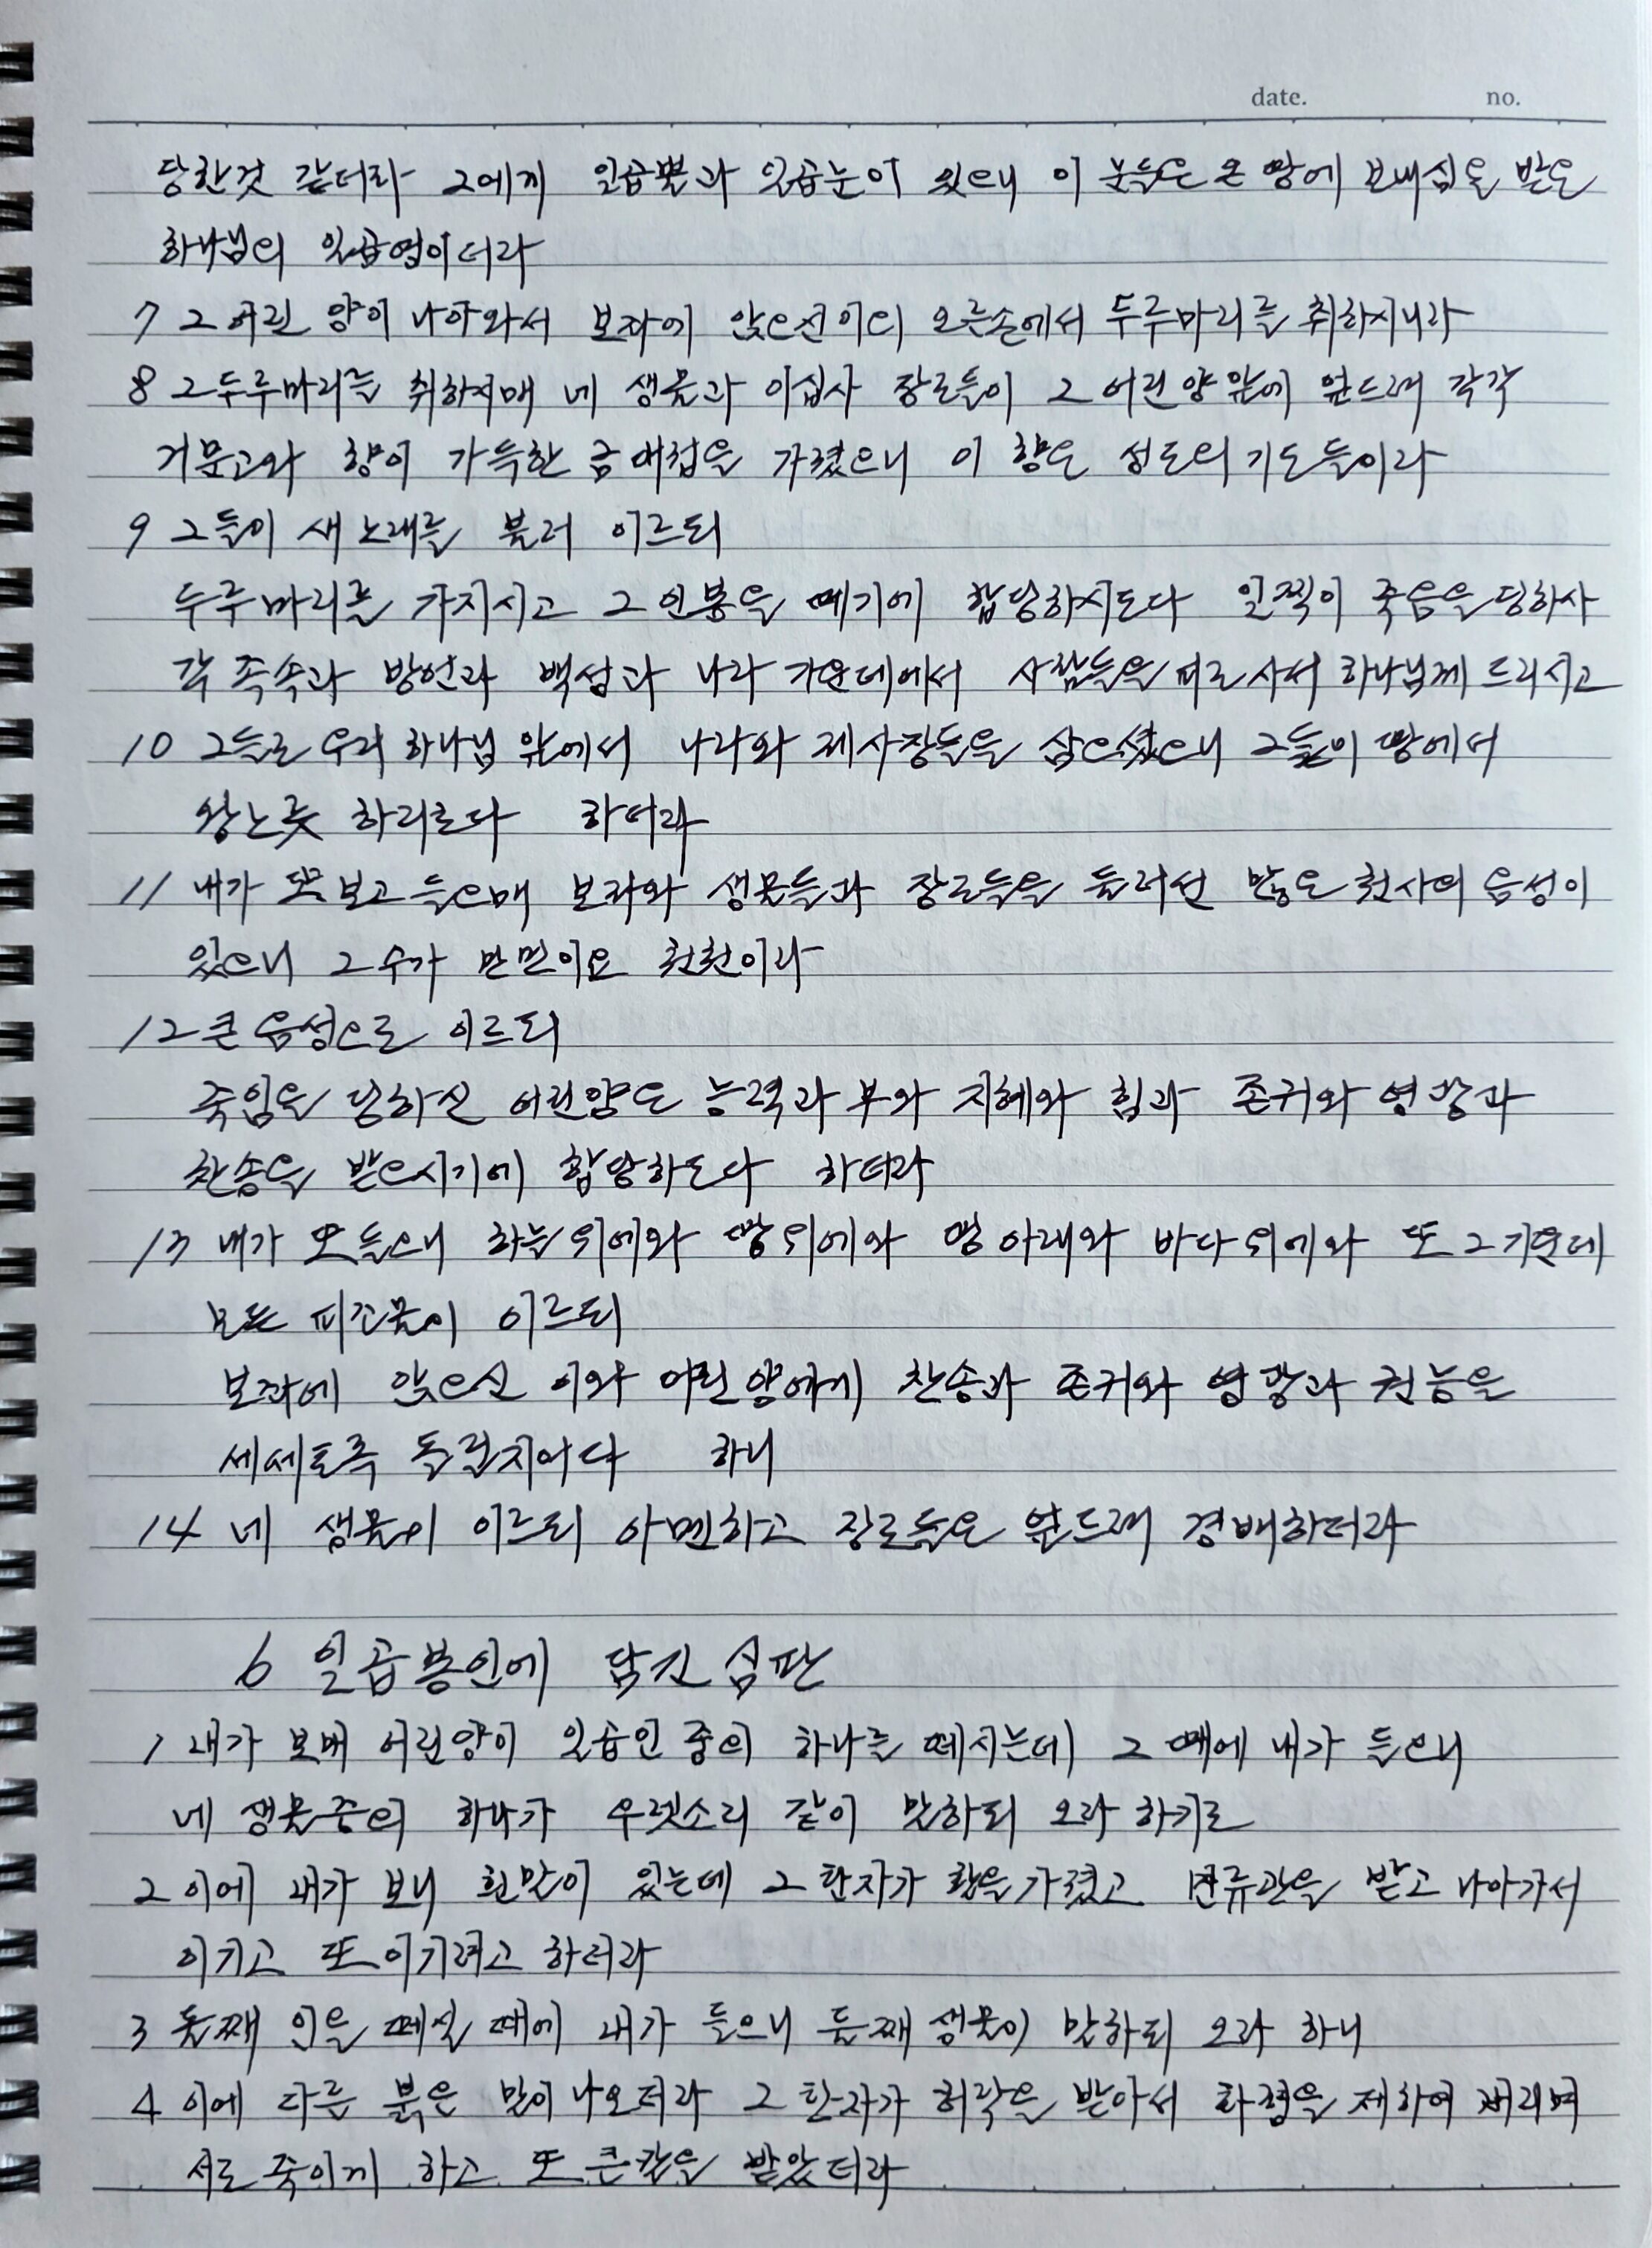 date. no.
당한것 같더라 그에게 일곱뿔과 일곱눈이 있으니 이 눈들은 온 땅에 보내심을 받은
하나님의 일곱영이더라
7 그 어린 양이 나아와서 보좌에 앉으신 이의 오른손에서 두루마리를 취하시니라
8 그 두루마리를 취하시매 네 생물과 이십사 장로들이 그 어린 양 앞에 엎드려 각각
거문고와 향이 가득한 금 대접을 가졌으니 이 향은 성도의 기도들이라
9 그들이 새 노래를 불러 이르되
두루마리를 가지시고 그 인봉을 떼기에 합당하시도다 일찍이 죽음을 당하사
각 족속과 방언과 백성과 나라 가운데에서 사람들을 피로 사서 하나님께 드리시고
10 그들로 우리 하나님 앞에서 나라와 제사장들을 삼으셨으니 그들이 땅에서
왕노릇 하리로다 하더라
11 내가 또 보고 들으매 보좌와 생물들과 장로들을 둘러선 많은 천사의 음성이
있으니 그 수가 만만이요 천천이라
12 큰 음성으로 이르되
죽임을 당하신 어린양은 능력과 부와 지혜와 힘과 존귀와 영광과
찬송을 받으시기에 합당하도다 하더라
13 내가 또 들으니 하늘 위에와 땅 위에와 땅 아래와 바다 위에와 또 그 가운데
모든 피조물이 이르되
보좌에 앉으신 이와 어린 양에게 찬송과 존귀와 영광과 권능을
세세토록 돌릴지어다 하니
14 네 생물이 이르되 아멘하고 장로들은 엎드려 경배하더라
6 일곱봉인에 담긴 심판
1 내가 보매 어린양이 일곱인 중의 하나를 떼시는데 그 때에 내가 들으니
네 생물중의 하나가 우렛소리 같이 말하되 오라 하기로
2 이에 내가 보니 흰말이 있는데 그 탄자가 활을 가졌고 면류관을 받고 나아가서
이기고 또 이기려고 하더라
3 둘째 인을 떼실 때에 내가 들으니 둘째 생물이 말하되 오라 하니
4 이에 다른 붉은 말이 나오더라 그 탄자가 허락을 받아서 화평을 제하여 버리며
서로 죽이게 하고 또 큰칼을 받았더라